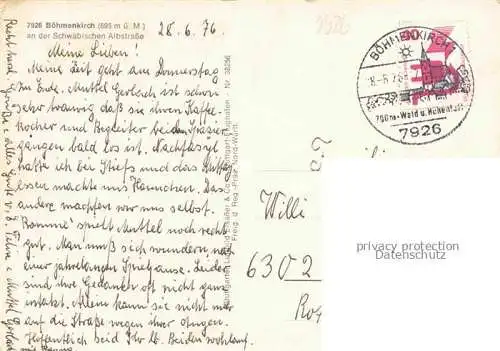 7926 Böhmenkirch (695 m ü. M.)
an der Schwäbischen Albstraße
28. 6. 76
Meine Lieben!
Meine Zeit geht am Donnerstag
zu Ende, Muttel Gerlach ist schon
sehr traurig daß sie ihren Kaffee-
kocher und Begleiter bei den Spazier
gängen bald los ist. Nachtasyl
hatte ich bei Stiefs und das Mittag
essen machte uns Hannchen. Das
andere machten wir uns selbst.
Rommé spielt Muttel noch recht
gut. Man muß sich wundern nach
einer jahrelangen Spielpause. Leider
sind ihre Augen nicht ganz
intakt. Allein kann sie nicht mehr
auf die Straße wegen ihrer Augen.
Hoffentlich seid Ihr lb. Beiden wohlauf.
Recht herzl. Grüße u. alles Gute
Muttel Gerlach
Nr. 38256
BÖHMENKIRCH
750m - Wald u. Höhenluft
7926
Willi
6302
privacy protection
Datenschutz